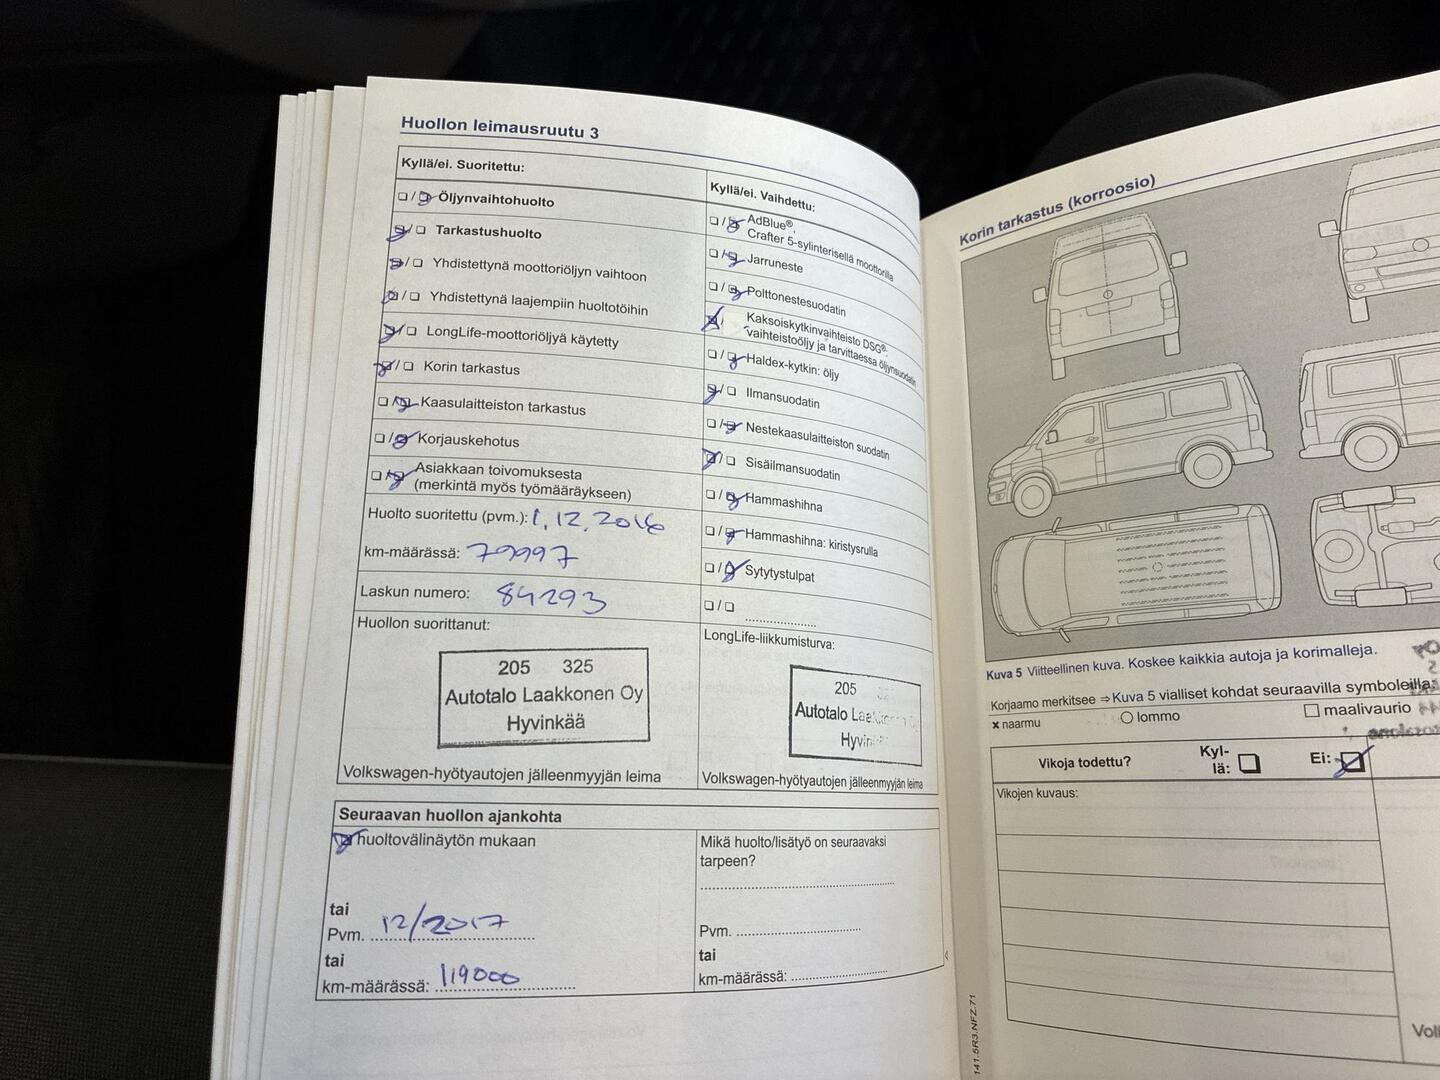 Huollon leimausruutu 3
Kyllä/ei. Suoritettu:
❏ / ❏ Öljynvaihtohuolto
❏ / ❏ Tarkastushuolto
❏ / ❏ Yhdistettynä moottoriöljyn vaihtoon
❏ / ❏ Yhdistettynä laajempiin huoltotöihin
❏ / ❏ LongLife-moottoriöljyä käytetty
❏ / ❏ Korin tarkastus
❏ / ❏ Kaasulaitteiston tarkastus
❏ / ❏ Korjauskehotus
❏ / ❏ Asiakkaan toivomuksesta
(merkintä myös työmääräykseen)
Huolto suoritettu (pvm.): 1.12.2016
km-määrässä: 79997
Laskun numero: 84293
Huollon suorittanut:
205 325
Autotalo Laakkonen Oy
Hyvinkää
Volkswagen-hyötyautojen jälleenmyyjän leima
Kyllä/ei. Vaihdettu:
❏ / ❏ AdBlue®,
Crafter 5-sylinterisellä moottorilla
❏ / ❏ Jarruneste
❏ / ❏ Polttonestesuodatin
❏ / Kaksoiskytkinvaihteisto DSG®:
vaihteistoöljy ja tarvittaessa öljynsuodatin
❏ / ❏ Haldex-kytkin: öljy
❏ / ❏ Ilmansuodatin
❏ / ❏ Nestekaasulaitteiston suodatin
❏ / ❏ Sisäilmansuodatin
❏ / ❏ Hammashihna
❏ / ❏ Hammashihna: kiristysrulla
❏ / ❏ Sytytystulpat
❏ / ❏ ....................
LongLife-liikkumisturva:
205
Autotalo
Volkswagen-hyötyautojen jälleenmyyjän leima
Seuraavan huollon ajankohta
huoltovälinäytön mukaan
tai
Pvm. 12/2017
tai
km-määrässä: 119000
Mikä huolto/lisätyö on seuraavaksi
tarpeen?
Pvm. ....................
tai
km-määrässä: ....................
Korin tarkastus (korroosio)
Kuva 5 Viitteellinen kuva. Koskee kaikkia autoja ja korimalleja.
Korjaamo merkitsee ⇒ Kuva 5 vialliset kohdat seuraavilla symboleilla:
× naarmu ○ lommo □ maalivaurio
Vikoja todettu? Kyl-
lä: ❏ Ei: ❏
Vikojen kuvaus:
141.5R3.NFZ.71